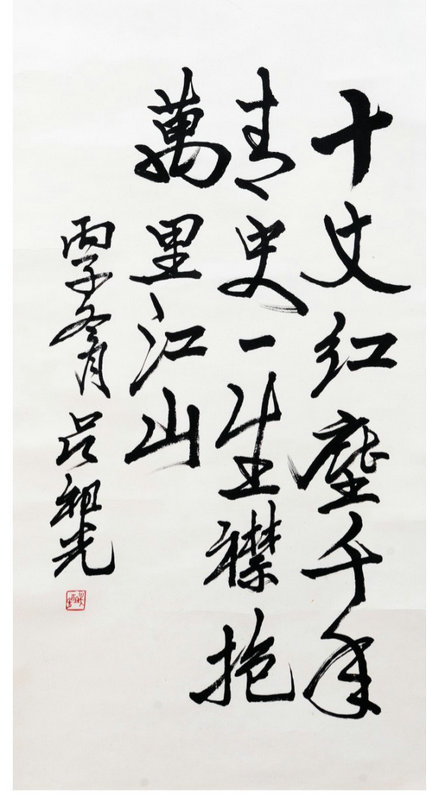 十丈红塵千年
青史一生襟抱
萬里江山
丙子冬月 吕祖光